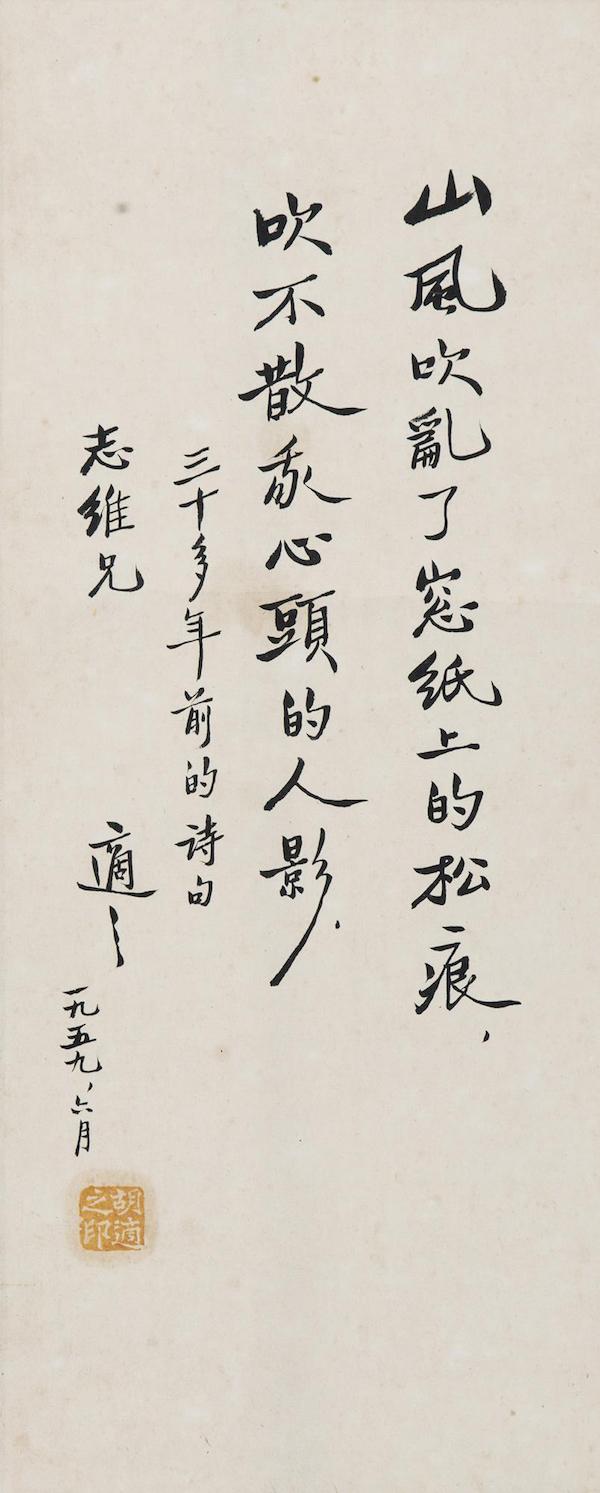 山風吹亂了窓紙上的松痕，
吹不散我心頭的人影．
三十多年前的詩句
志維兄
適之
一九五九、六月
胡適之印